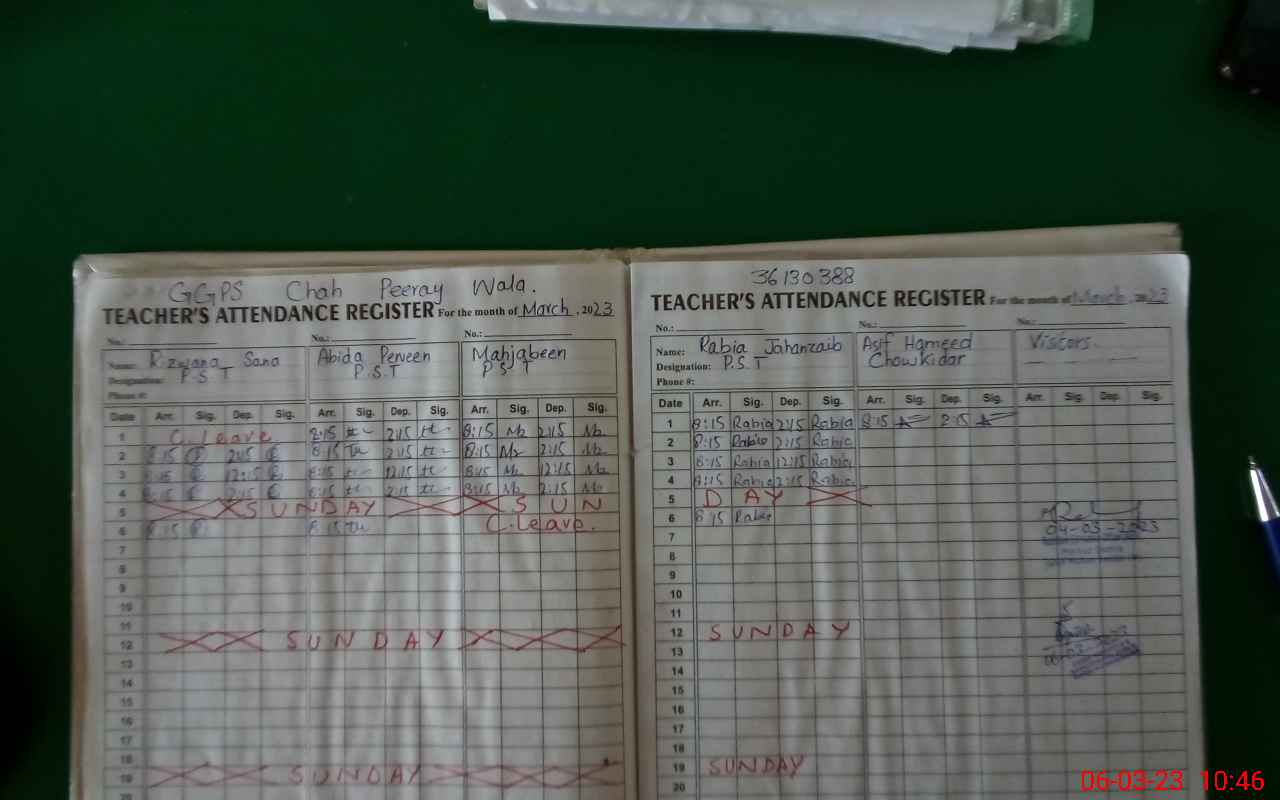 GGPS Chah Peeray Wala.
TEACHER'S ATTENDANCE REGISTER For the month of March, 2023
No.: No.: No.:
Name: Rizwana Sana Abida Perveen Mahjabeen
Designation: P.S.T P.S.T P S T
Phone #:
Date Arr. Sig. Dep. Sig. Arr. Sig. Dep. Sig. Arr. Sig. Dep. Sig.
1 C. Leave 8:15 2:15 8:15 2:15
2 8:15 2:15 8:15 2:15 8:15 2:15
3 8:15 12:15 8:15 12:15 8:15 12:15
4 8:15 2:15 8:15 2:15 8:15 2:15
5 SUNDAY SUN
6 8:15 8:15 C.Leave.
7
8
9
10
11
12 SUNDAY
13
14
15
16
17
18
19 SUNDAY
20
36130388
TEACHER'S ATTENDANCE REGISTER For the month of March, 2023
No.: No.: No.:
Name: Rabia Jahanzaib Asif Hameed Visitors
Designation: P.S.T Chowkidar
Phone #:
Date Arr. Sig. Dep. Sig. Arr. Sig. Dep. Sig. Arr. Sig. Dep. Sig.
1 8:15 Rabia 2:15 Rabia 8:15 2:15
2 8:15 Rabia 2:15 Rabia
3 8:15 Rabia 12:15 Rabia
4 8:15 Rabia 2:15 Rabia
5 DAY
6 8:15 Rabia
7 04-03-2023
8
9
10
11
12 SUNDAY
13
14
15
16
17
18
19 SUNDAY
20
06-03-23 10:46